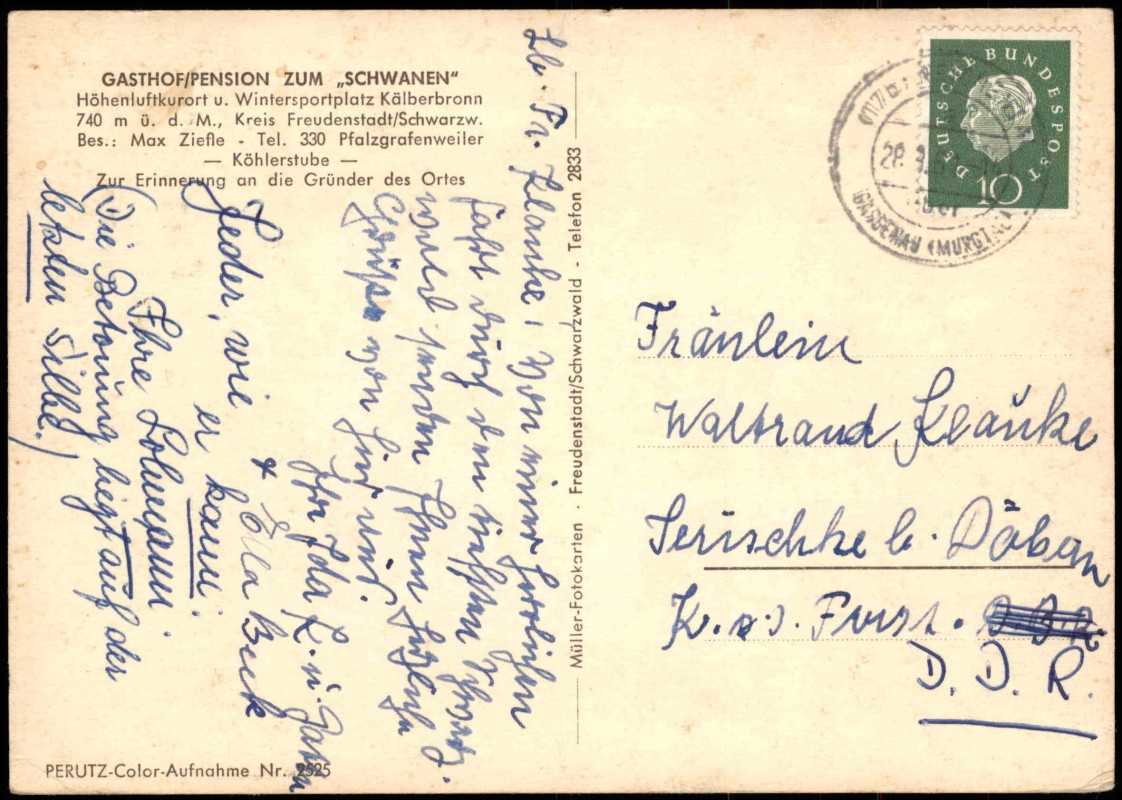 GASTHOF/PENSION ZUM „SCHWANEN"
Höhenluftkurort u. Wintersportplatz Kälberbronn
740 m ü. d. M., Kreis Freudenstadt/Schwarzw.
Bes.: Max Ziefle - Tel. 330 Pfalzgrafenweiler
— Köhlerstube —
Zur Erinnerung an die Gründer des Ortes
Lb. Frl. Klauke, von einer herrlichen
Fahrt durch den tiefsten Schwarz-
wald senden Ihnen herzliche
Grüße von hier und
Ihre Ida L. u.
+ Ella Beck
Jeder, wie er kann.
Ihre Lohmann.
(Die Betonung liegt auf der
letzten Silbe.)
PERUTZ-Color-Aufnahme Nr. 2525
Müller-Fotokarten · Freudenstadt/Schwarzwald - Telefon 2833
DEUTSCHE BUNDESPOST
10
28.
(MURGTAL)
Fräulein
Waltraud Klauke
Serischke b. Döbern
Forst.
D. D. R.